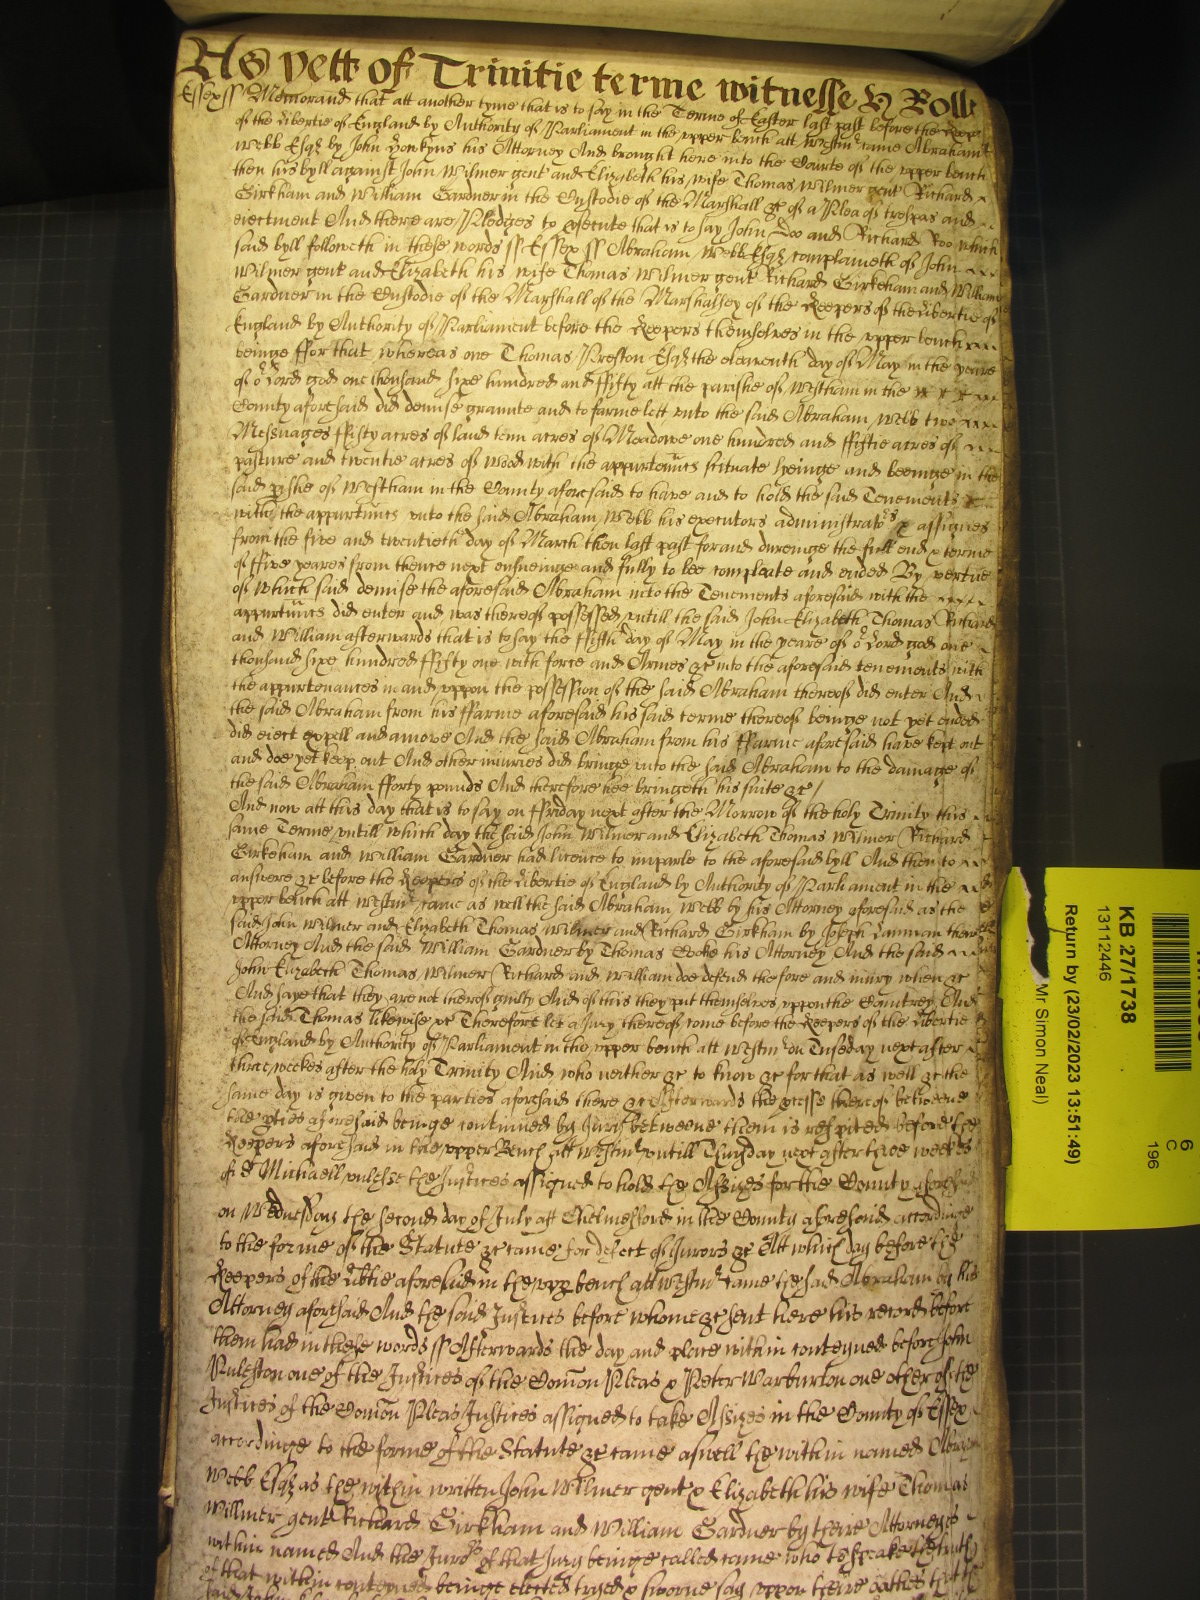 As yett of Trinitie terme witnesse H Rolle
Essex ss Memorand that att another tyme that is to say in the Terme of Easter last past before the Keepers
of the Libertie of England by Authority of Parliament in the upper bench att Westm came Abraham
Webb Esqz by John his Attorney And brought here into the Courte of the upper bench
then his byll against John Wilmer gent and Elizabeth his wife Thomas Wilmer gent Richard
Girkham and William Gardner in the Custodie of the Marshall &c of a Plea of trespas and
eiectment And there are Pledges to psecute that is to say John Doo and Richard Roo which
said byll followeth in these words ss Essex ss Abraham Webb Esqz complaineth of John
Wilmer gent and Elizabeth his wife Thomas Wilmer gent Richard Girkeham and William
Gardner in the Custodie of the Marshall of the Marshalsey of the Keepers of the Libertie of
England by Authority of Parliament before the Keepers themselves in the upper bench
beinge ffor that whereas one Thomas Preston Esqz the eleaventh day of May in the yeare
of or Lord god one thousand sixe hundred and ffifty att the parishe of Westham in the
County aforesaid did demise graunte and to farme lett unto the said Abraham Webb two
Messuages ffifty acres of land tenn acres of Meadowe one hundred and ffiftie acres of
pasture and twentie acres of wood with the appurtennces scituate lyeinge and beeinge in the
said pishe of Westham in the County aforesaid to have and to hold the said Tenements
with the appurtnnces unto the said Abraham Webb his executors administrators & assignes
from the five and twentieth day of March then last past for and dureinge the full end & terme
of ffive yeares from thence next ensueinge and fully to bee compleate and ended By vertue
of which said demise the aforesaid Abraham into the Tenements aforesaid with the
appurtnnces did enter and was thereof possessed untill the said John Elizabeth Thomas Richard
and William afterwards that is to say the ffifth day of May in the yeare of or Lord god one
thousand sixe hundred ffifty one with force and Armes &c into the aforesaid tenements with
the appurtenances in and uppon the possession of the said Abraham thereof did enter And
the said Abraham from his ffarme aforesaid his said terme thereof beinge not yet ended
did eiect expell and amove And the said Abraham from his ffarme aforesaid have kept out
and doe yet keep out And other iniuries did bringe unto the said Abraham to the damage of
the said Abraham fforty pounds And therefore hee bringeth his suite &c /
And now att this day that is to say on ffriday next after the Morrow of the holy Trinity this
same Terme untill which day the said John Wilmer and Elizabeth Thomas Wilmer Richard
Girkeham and William Gardner had licence to imparle to the aforesaid byll And then to
answere &c before the Keepers of the Libertie of England by Authority of Parliament in the
upper bench att Westm came as well the said Abraham Webb by his Attorney aforesaid as the
said John Wilmer and Elizabeth Thomas Wilmer and Richard Girkham by Joseph their
Attorney And the said William Gardner by Thomas Cooke his Attorney And the said
John Elizabeth Thomas Wilmer Richard and William doe defend the fore and iniury when &c
And saye that they are not thereof guilty And of this they put themselves uppon the Countrey And
the said Thomas likewise &c Therefore let a Jury thereof come before the Keepers of the Libertie
of England by Authority of Parliament in the upper bench att Westm on Tuseday next after
three weekes after the holy Trinity And who neither &c to know &c for that as well &c the
same day is given to the parties aforesaid there &c Afterwards the pcesse thereof betweene
the pties aforesaid beinge continued by Jury betweene them is respited before the
Keepers aforesaid in the upper Bench att Westm untill Thursday next after three weekes
of St Michaell unlesse the Justices assigned to hold the Assizes for the County aforesaid
on Wednesday the second day of July att Chelmesford in the County aforesaid accordinge
to the forme of the Statute &c came for defect of Jurors &c Att which day before the
Keepers of the Libtie aforesaid in the upp bench att Westm came the said Abraham by his
Attorney aforesaid And the said Justices before whome &c sent here his record before
them had in these words ss Afterwards the day and place within conteyned before John
Puleston one of the Justices of the Comon Pleas & Peter Warburton one other of the
Justices of the Comon Pleas Justices assigned to take Assizes in the County of Essex
accordinge to the forme of the Statute &c came aswell the within named Abraham
Webb Esqz as the within written John Willmer gent & Elizabeth his wife Thomas
Willmer gent Richard Girkham and William Gardner by theire Attorneyes
within named And the Jurors of that Jury beinge called came who to speake the truth
of that within conteyned beinge elected tryed & sworne say uppon theire oathes that the
KB 27/1738
13112446
Return by (23/02/2023 13:51:49)
Mr Simon Neal)
6
C
196